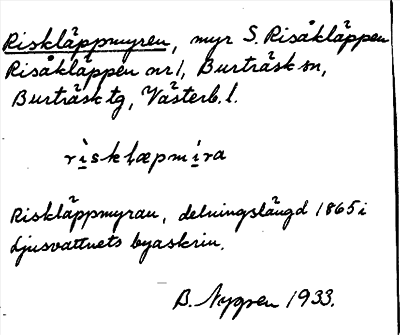 Riskläppmyren, myr S. Risåkläppen
Risåkläppen nr 1, Burträsk sn,
Burträsk tg, Västerb. l.
rìsklæpmìra
Riskläppmyran, delningslängd 1865 i
Ljusvattnets byaskrin.
B. Nygren 1933.